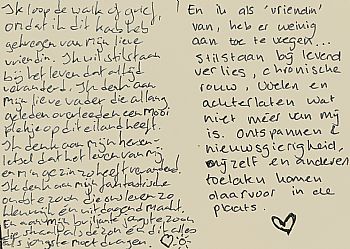 Ik loop de walk of grief,
omdat ik dit had heb
gekregen van mijn lieve
vriendin. Ik wil stilstaan
bij het leven dat altijd
veranderd. Ik denk aan
mijn lieve vader die al lang
geleden overleed en een mooi
plekje op dit eiland heeft.
Ik denk aan mijn hersen-
letsel dat het leven van mij
en mijn gezin zo heeft veranderd.
Ik denk aan mijn fantastische
oudste zoon die ons leven zo
kleurrijk en uitdagend maakt.
En aan mijn jongste zoon
die straalt als de zon en dit alles
als jongste moet dragen.
En ik als 'vriendin'
van, heb er weinig
aan toe te voegen...
Stilstaan bij levend
verlies, chronische
rouw. Voelen en
achterlaten wat
niet meer van mij
is. Ontspannen &
nieuwsgierigheid,
mijzelf en anderen
toelaten komen
daarvoor in de
plaats.